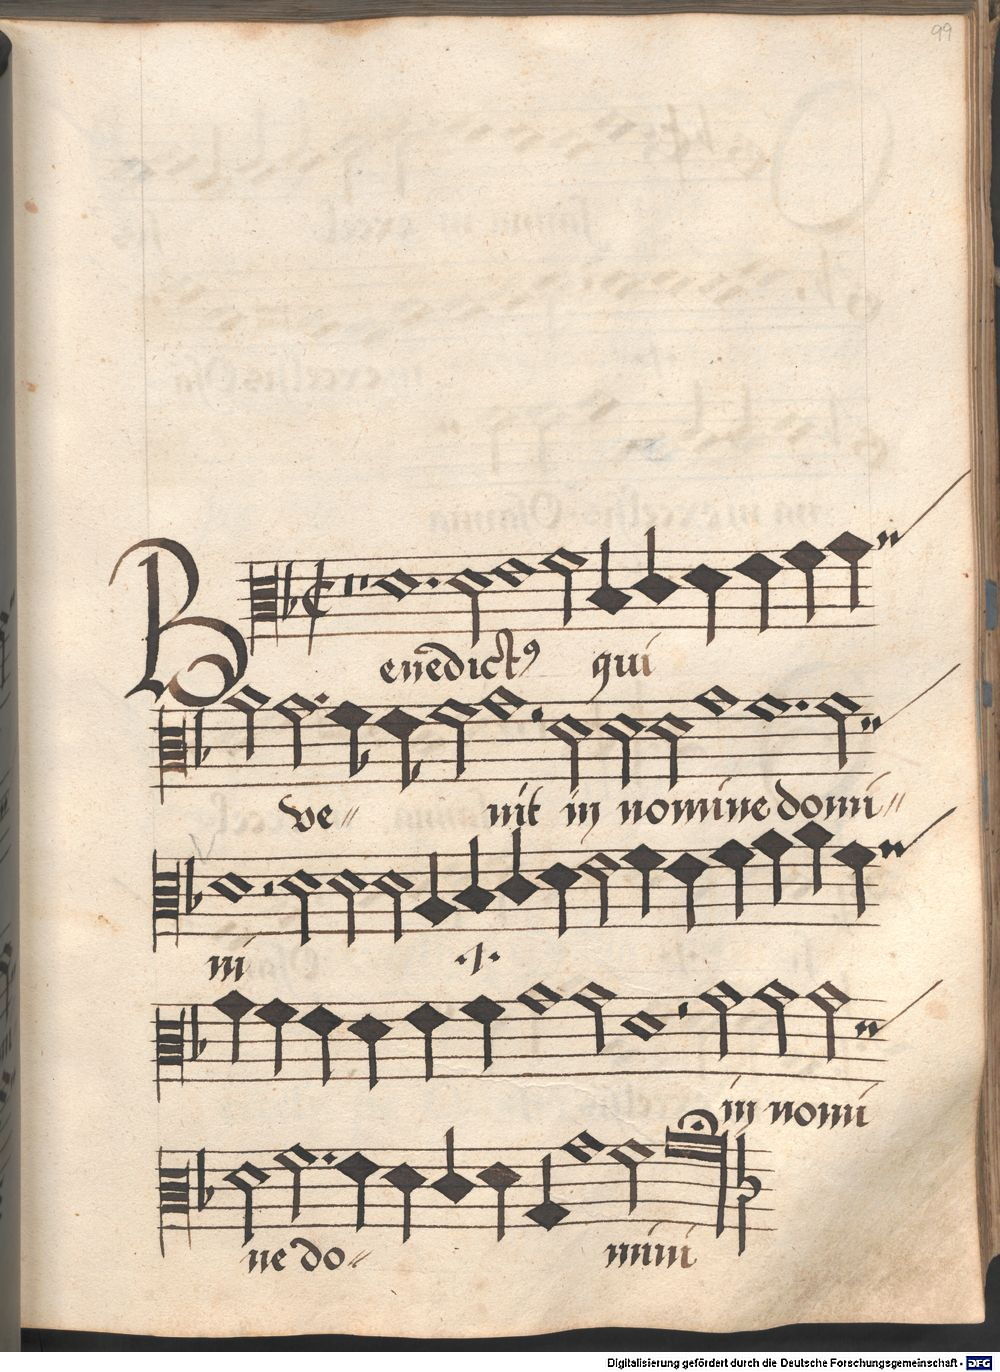 99
Benedictꝰ qui
ve- nit in nomine domi-
ni ·/·
in nomi
ne do- mini
Digitalisierung gefördert durch die Deutsche Forschungsgemeinschaft - DFG